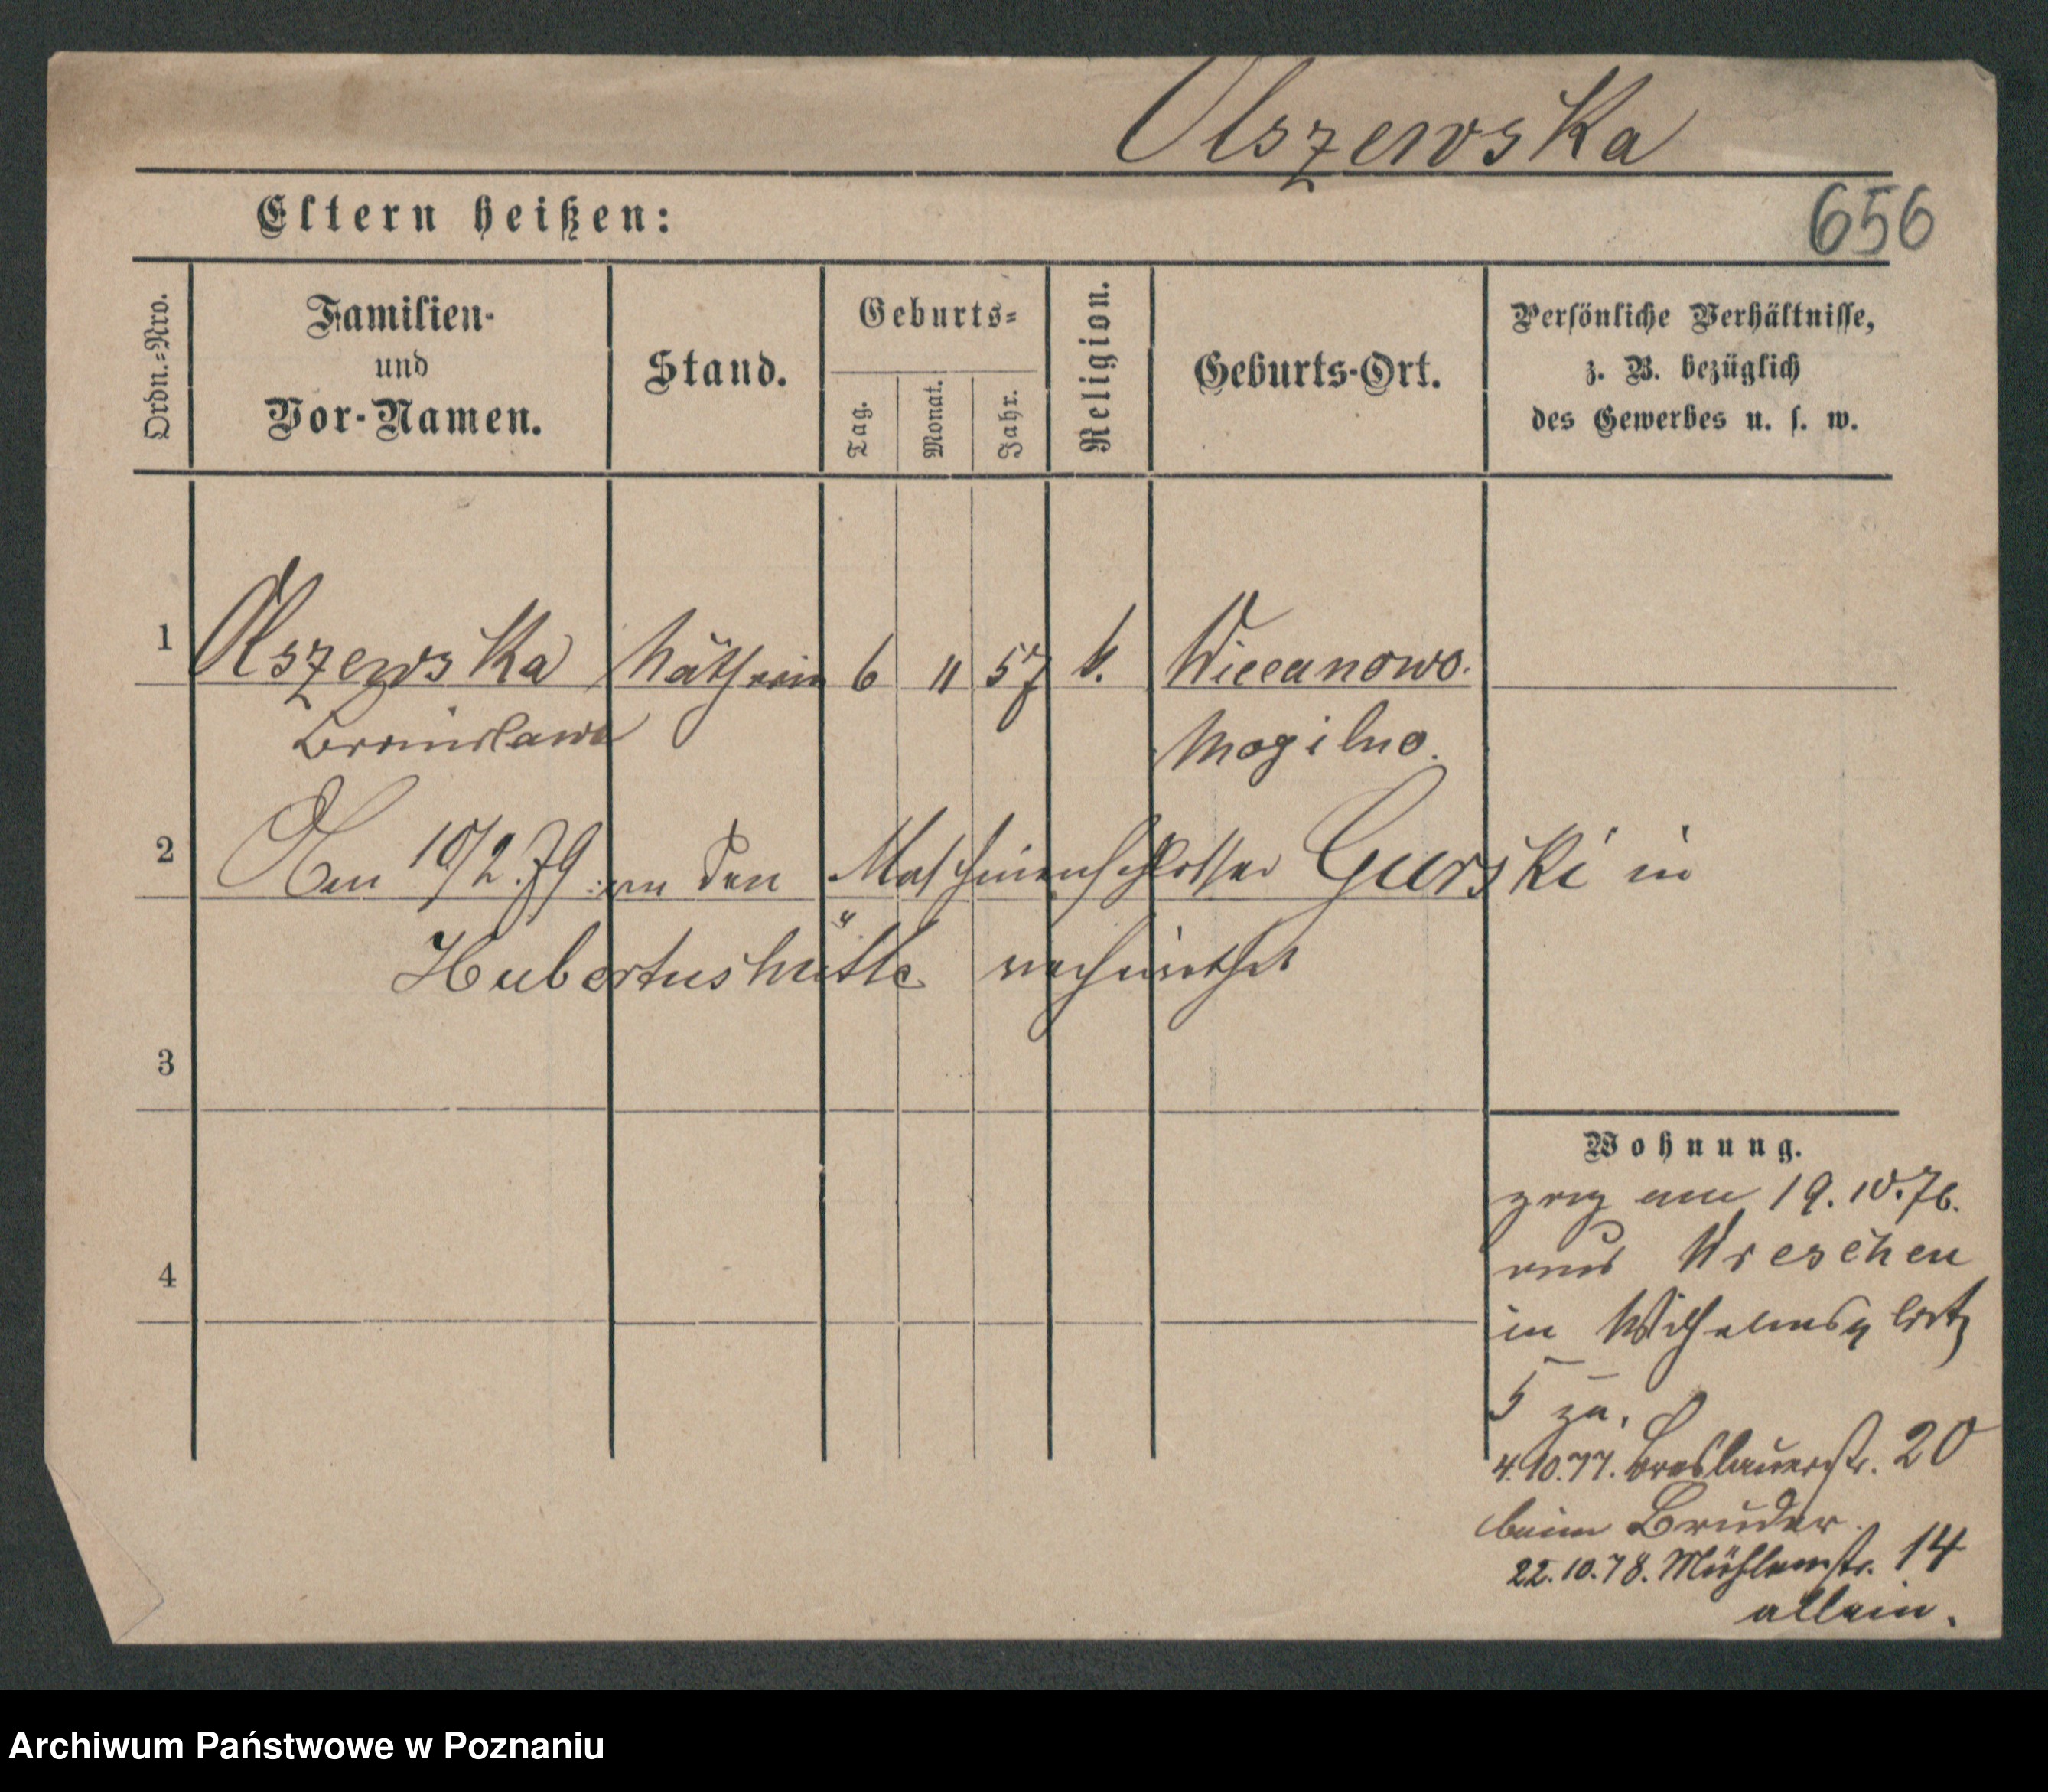 Olszewska
656
Eltern heißen:
Ordn.-Nro.
Familien-
und
Vor-Namen.
Stand.
Geburts-
Tag.
Monat.
Jahr.
Religion.
Geburts-Ort.
Persönliche Verhältnisse,
z. B. bezüglich
des Gewerbes u. s. w.
1 Olszewska Nätherin 6 11 57 k. Wiecanowo.
Bronislawa Mogilno.
2 Am 10/2.79 an den Maschinenschlosser Gurski in
Hubertushütte verheirathet
3
4
Wohnung.
zog am 19.10.76.
aus Wreschen
in Wilhelmsplatz
5 zu.
4.10.77. Breslauerstr. 20
beim Bruder.
22.10.78. Mühlenstr. 14
allein.
Archiwum Państwowe w Poznaniu